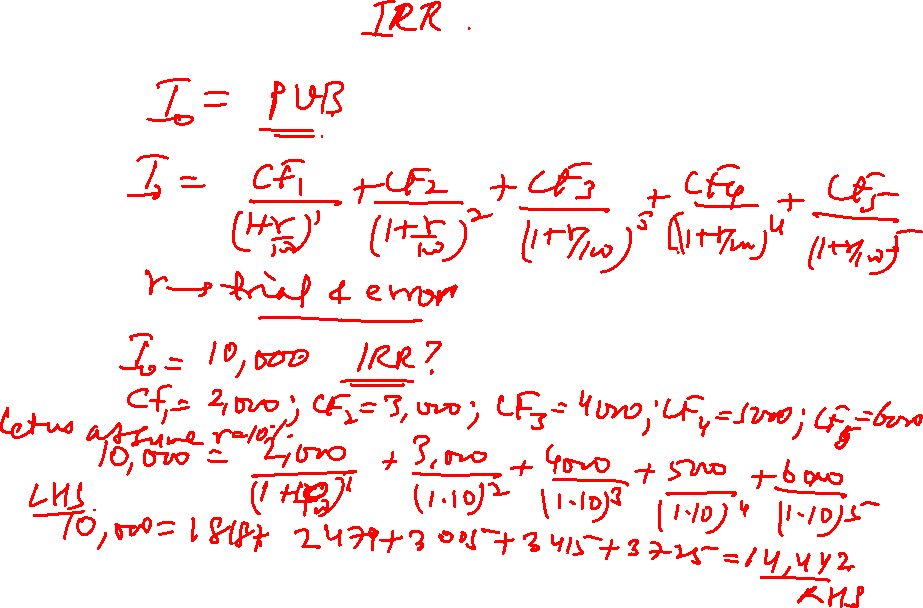 IRR .
I₀ = PVB
I₀ = CF₁/(1+r/100)¹ + CF₂/(1+r/100)² + CF₃/(1+r/100)³ + CF₄/(1+r/100)⁴ + CF₅/(1+r/100)⁵
r → trial & error
I₀ = 10,000 IRR?
CF₁ = 2,000; CF₂ = 3,000; CF₃ = 4000; CF₄ = 5000; CF₅ = 6000
Let us assume r = 10%.
10,000 = 2,000/(1+10/100)¹ + 3,000/(1.10)² + 4000/(1.10)³ + 5000/(1.10)⁴ + 6000/(1.10)⁵
LHS
10,000 = 1818+ 2479+3005+3415+3725 = 14,442
RHS